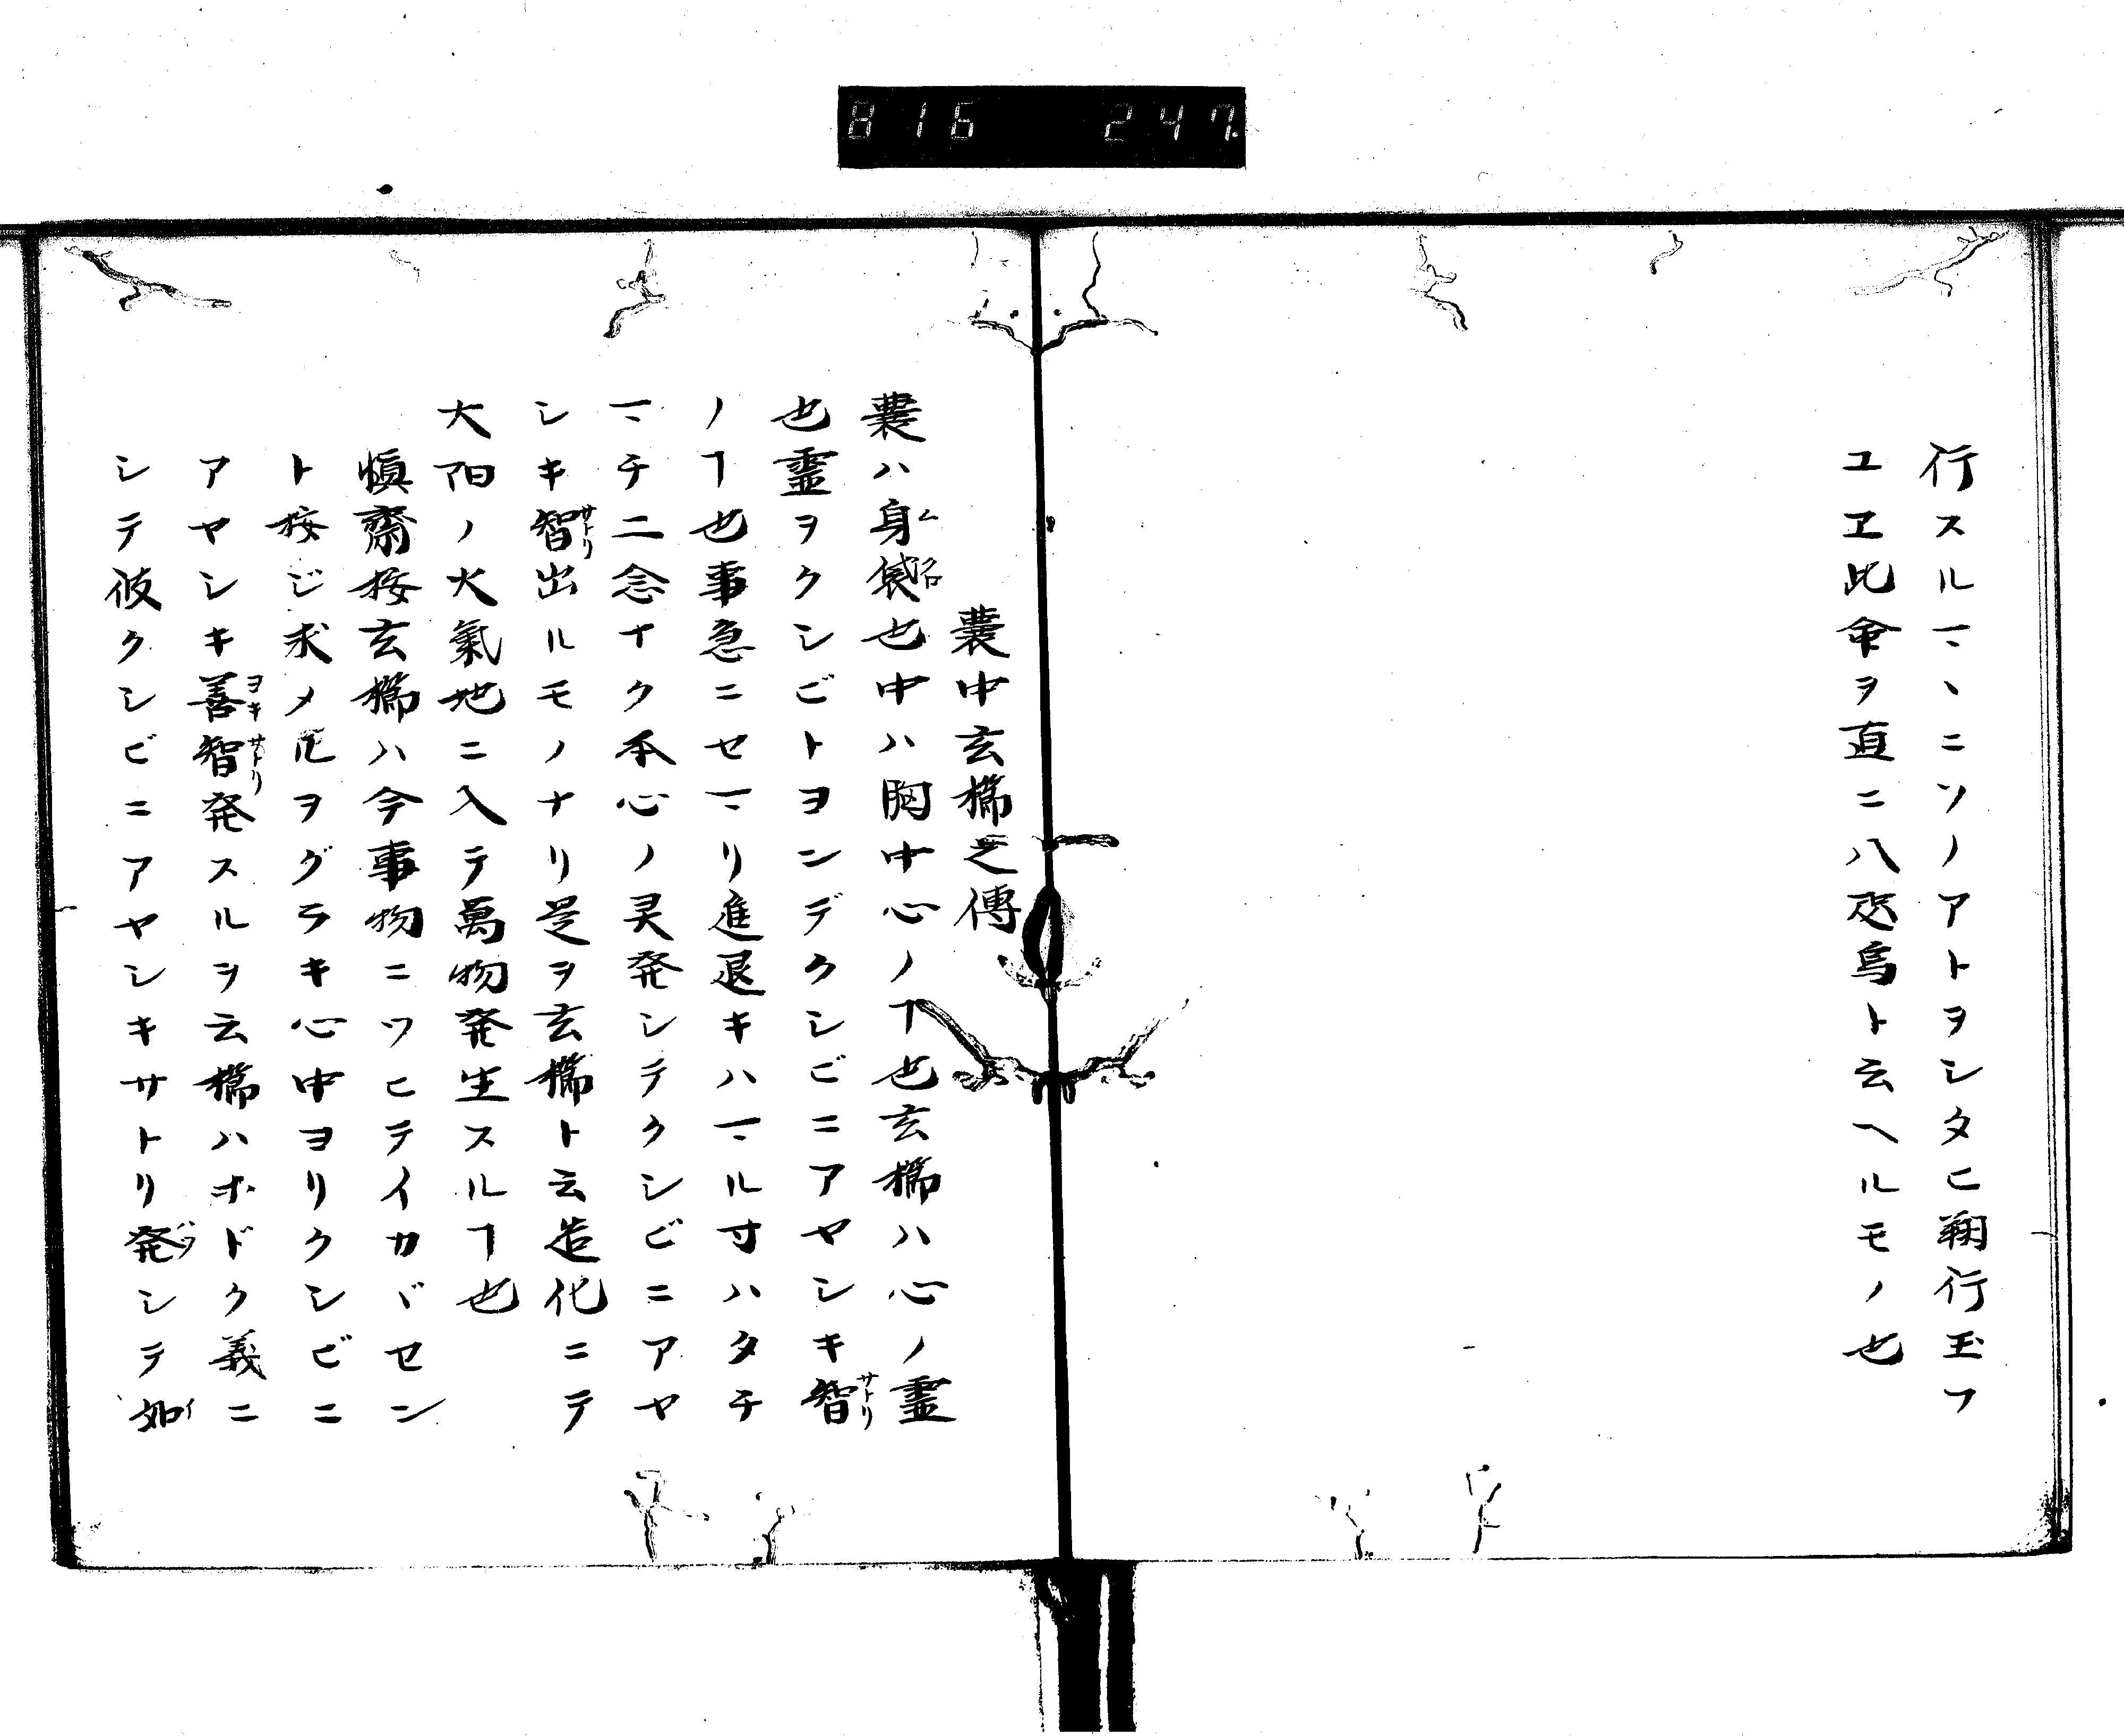 816 247
行スルマヽニソノアトヲシタヒ翔行玉フ
ユヱ此命ヲ直ニ八咫烏ト云ヘルモノ也
嚢中玄櫛之傳
嚢ハ身袋也中ハ胸中心ノヿ也玄櫛ハ心ノ霊
也霊ヲクシビトヨンデクシビニアヤシキ智
ノヿ也事急ニセマリ進退キハマル寸ハタチ
マチ二念ナク本心ノ灵発シテクシビニアヤ
シキ智出ルモノナリ是ヲ玄櫛ト云造化ニテ
大陽ノ火氣地ニ入テ萬物発生スルヿ也
慎齋按玄櫛ハ今事物ニツヒテイカヾセン
ト按ジ求メ𪜈ヲグラキ心中ヨリクシビニ
アヤシキ善智発スルヲ云櫛ハホドク義ニ
シテ彼クシビニアヤシキサトリ発シテ如